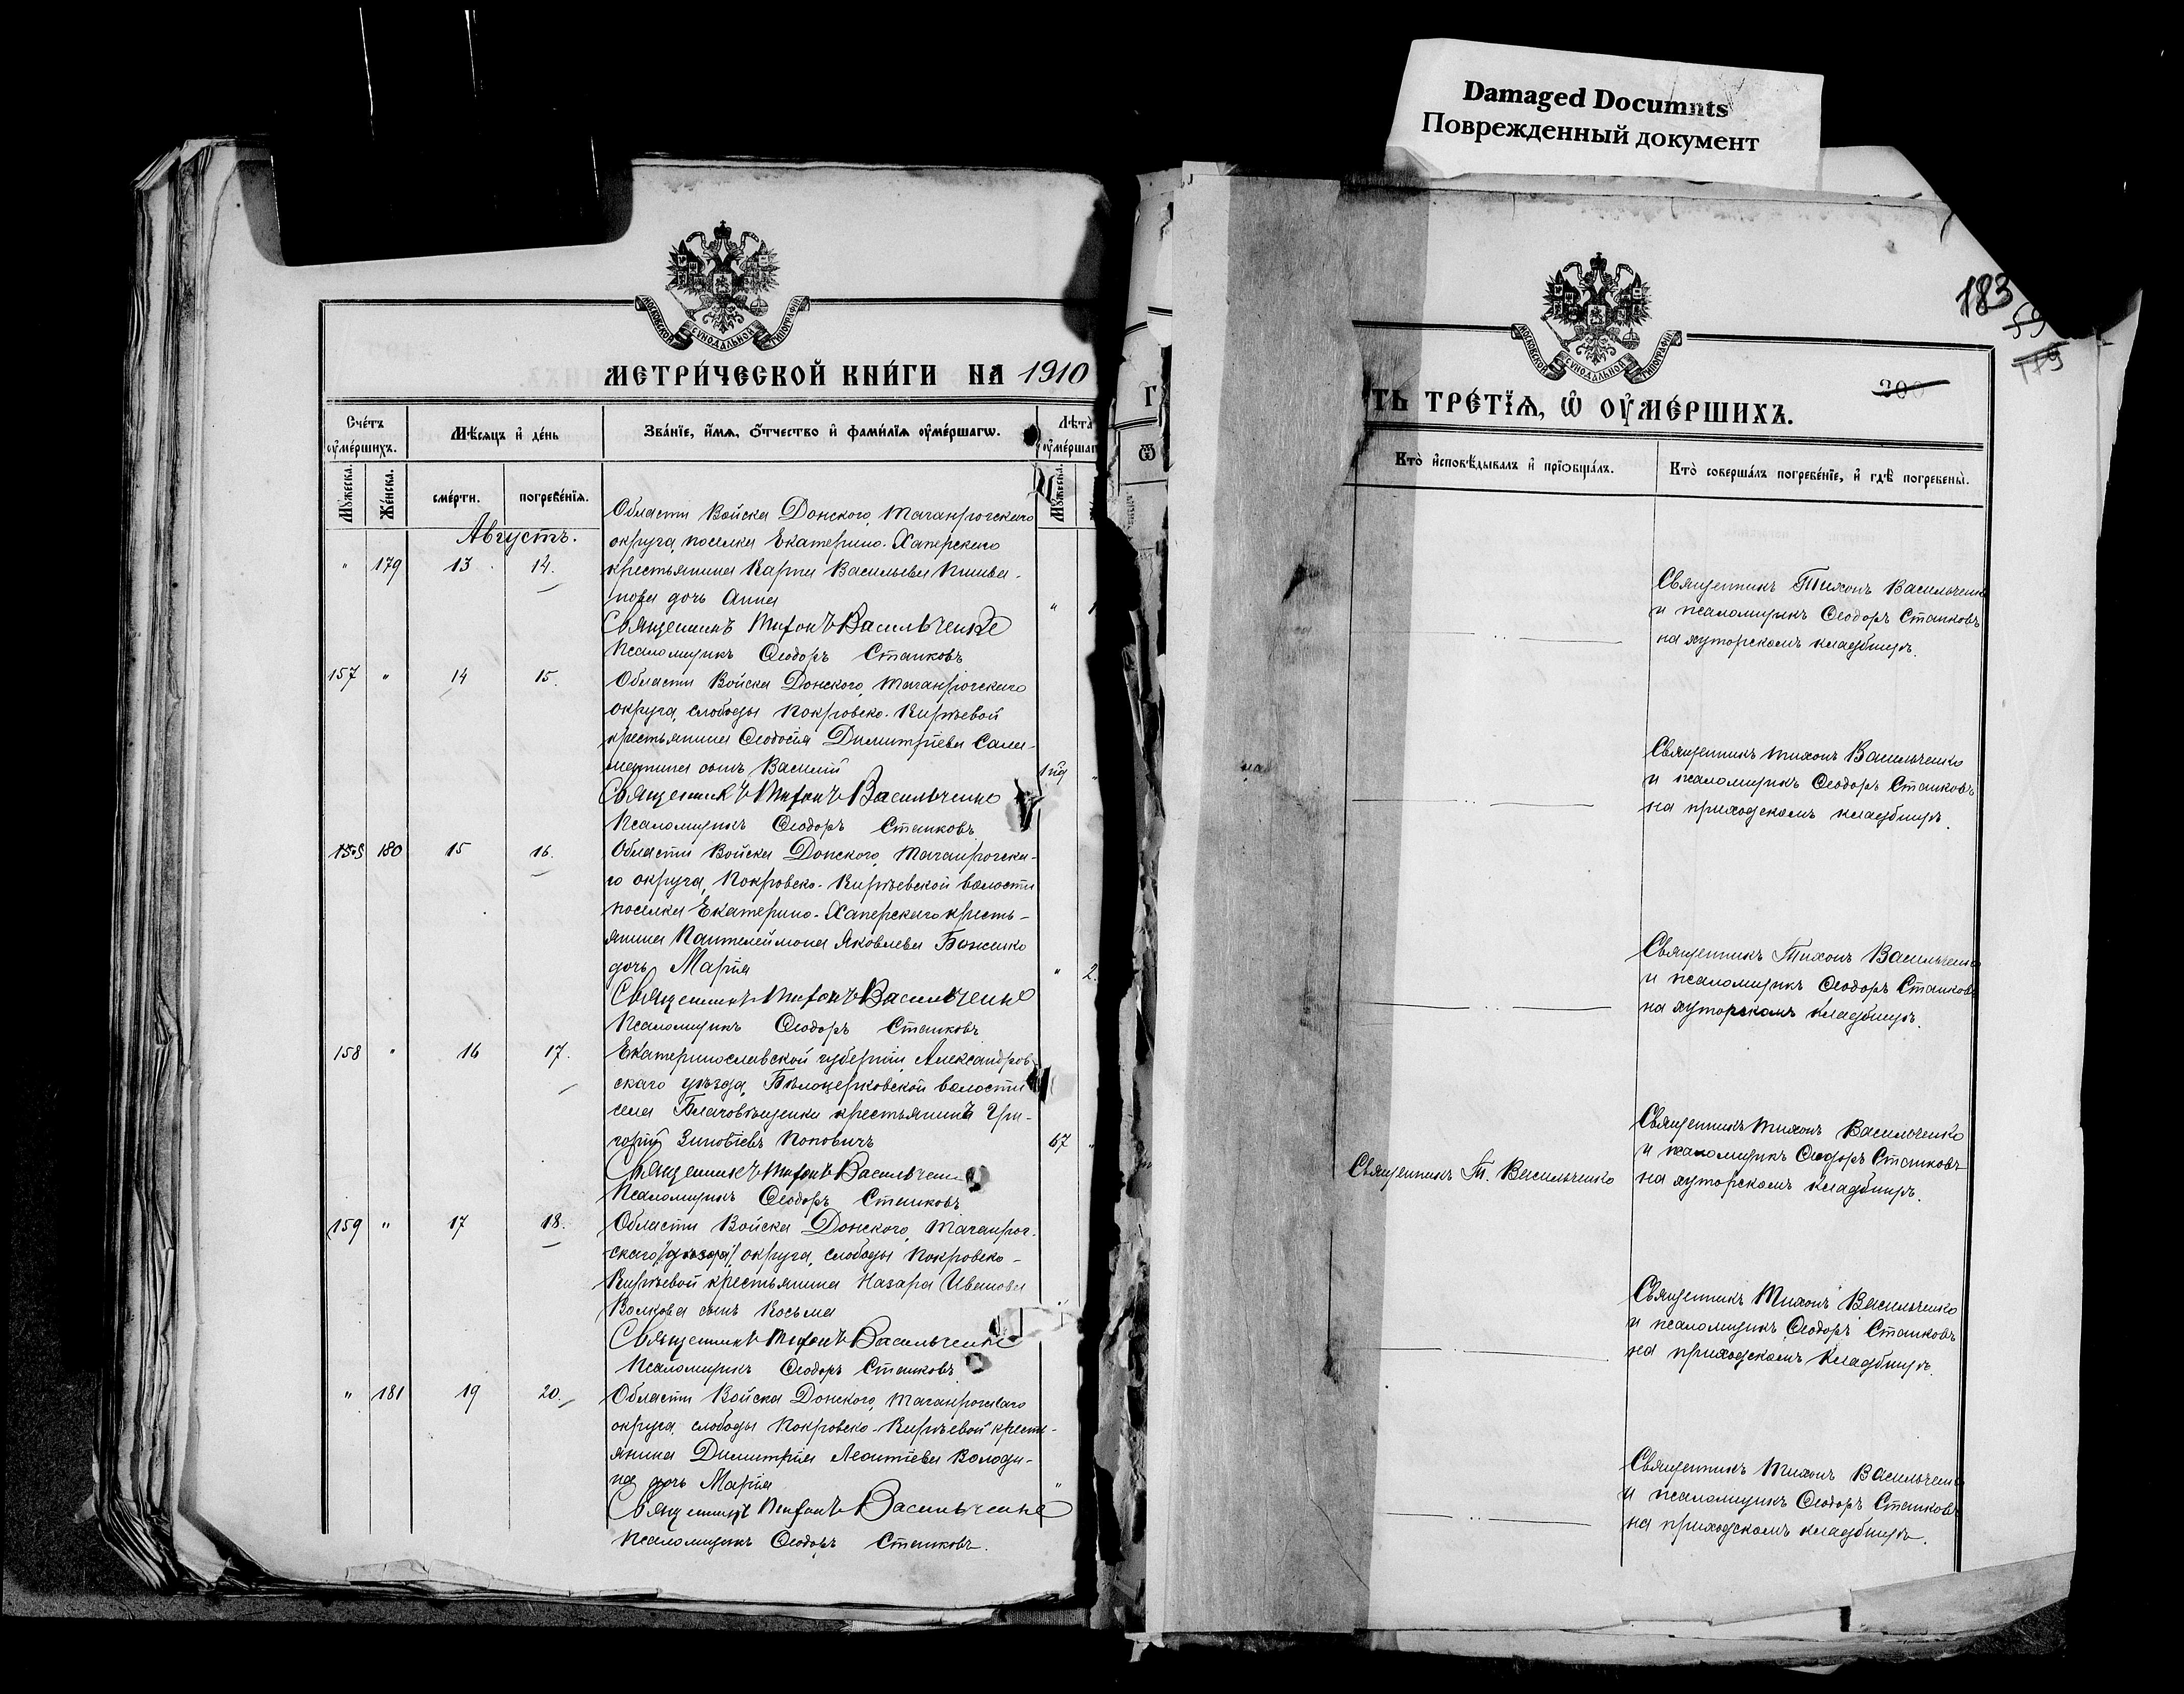 Damaged Documnts
Поврежденный документ
МОСКОВСКОЙ СѴНОДАЛЬНОЙ ТИПОГРАФІИ
МЕТРИ́ЧЕСКОЙ КНИ́ГИ НА 1910
Сче́тъ ᲂу҆ме́ршихъ.
Мѣ́сяцъ и҆ де́нь
Зва́нїе, и҆́мѧ, ѻ҆́тчество и҆ фами́лїѧ ᲂу҆ме́ршагѡ.
Лѣ́та
ᲂу҆ме́ршаг
Мꙋ́жеска.
Же́нска.
сме́рти.
погребе́нїѧ.
Мꙋ́жеска.
Августъ.
Области Войска Донского, Таганрогскаго
округа, поселка Екатерино-Хаперскаго
" 179 13 14. крестьянина Карпа Васильева
дочь Анна "
Священникъ Тихонъ Васильченко
Псаломщикъ Ѳеодоръ Станковъ
157 " 14 15. Области Войска Донского, Таганрогскаго
округа, слободы Покровско-Кирѣевой
крестьянина Ѳеодосія Димитріева
сынъ Василій "
Священникъ Тихонъ Васильченко
Псаломщикъ Ѳеодоръ Станковъ
180 15 16. Области Войска Донского, Таганрогска-
го округа, Покровско-Кирѣевской волости
поселка Екатерино-Хаперскаго кресть-
янина Пантелеймона Яковлева Боженко
дочь Марія " 2
Священникъ Тихонъ Васильченко
Псаломщикъ Ѳеодоръ Станковъ
158 " 16 17. Екатеринославской губерніи, Александров-
скаго уѣзда, Бѣлоцерковской волости
села Благовѣщенки крестьянинъ Гри-
горій Зиновіевъ Поповичъ 67 "
Священникъ Тихонъ Васильченко
Псаломщикъ Ѳеодоръ Станковъ
159 " 17 18. Области Войска Донского, Таганрог-
скаго /уѣзда/ округа, слободы Покровско-
Кирѣевой крестьянина Назара Иванова
Волкова сынъ Косьма
Священникъ Тихонъ Васильченко
Псаломщикъ Ѳеодоръ Станковъ
" 181 19 20. Области Войска Донского, Таганрогскаго
округа, слободы Покровско-Кирѣевой кресть-
янина Димитрія Леонтіева Володи-
на дочь Марія "
Священникъ Тихонъ Васильченко
Псаломщикъ Ѳеодоръ Станковъ.
183
179
200
МОСКОВСКОЙ СѴНОДАЛЬНОЙ ТИПОГРАФІИ
ТЬ ТРЕ́ТЇѦ, Ѽ ОУ҆МЕ́РШИХЪ.
Кто̀ и҆сповѣ́дывалъ и҆ прїѡбща́лъ.
Кто̀ соверша́лъ погребе́нїе, и҆ гдѣ̀ погребены̀.
Священникъ Тихонъ Васильченко
и псаломщикъ Ѳеодоръ Станковъ
на хуторскомъ кладбищѣ.
Священникъ Тихонъ Васильченко
и псаломщикъ Ѳеодоръ Станковъ
на приходскомъ кладбищѣ.
Священникъ Тихонъ Васильченко
и псаломщикъ Ѳеодоръ Станковъ
на хуторскомъ кладбищѣ.
Священникъ Т. Васильченко
Священникъ Тихонъ Васильченко
и псаломщикъ Ѳеодоръ Станковъ
на хуторскомъ кладбищѣ.
Священникъ Тихонъ Васильченко
и псаломщикъ Ѳеодоръ Станковъ
на приходскомъ кладбищѣ.
Священникъ Тихонъ Васильченко
и псаломщикъ Ѳеодоръ Станковъ
на приходскомъ кладбищѣ.